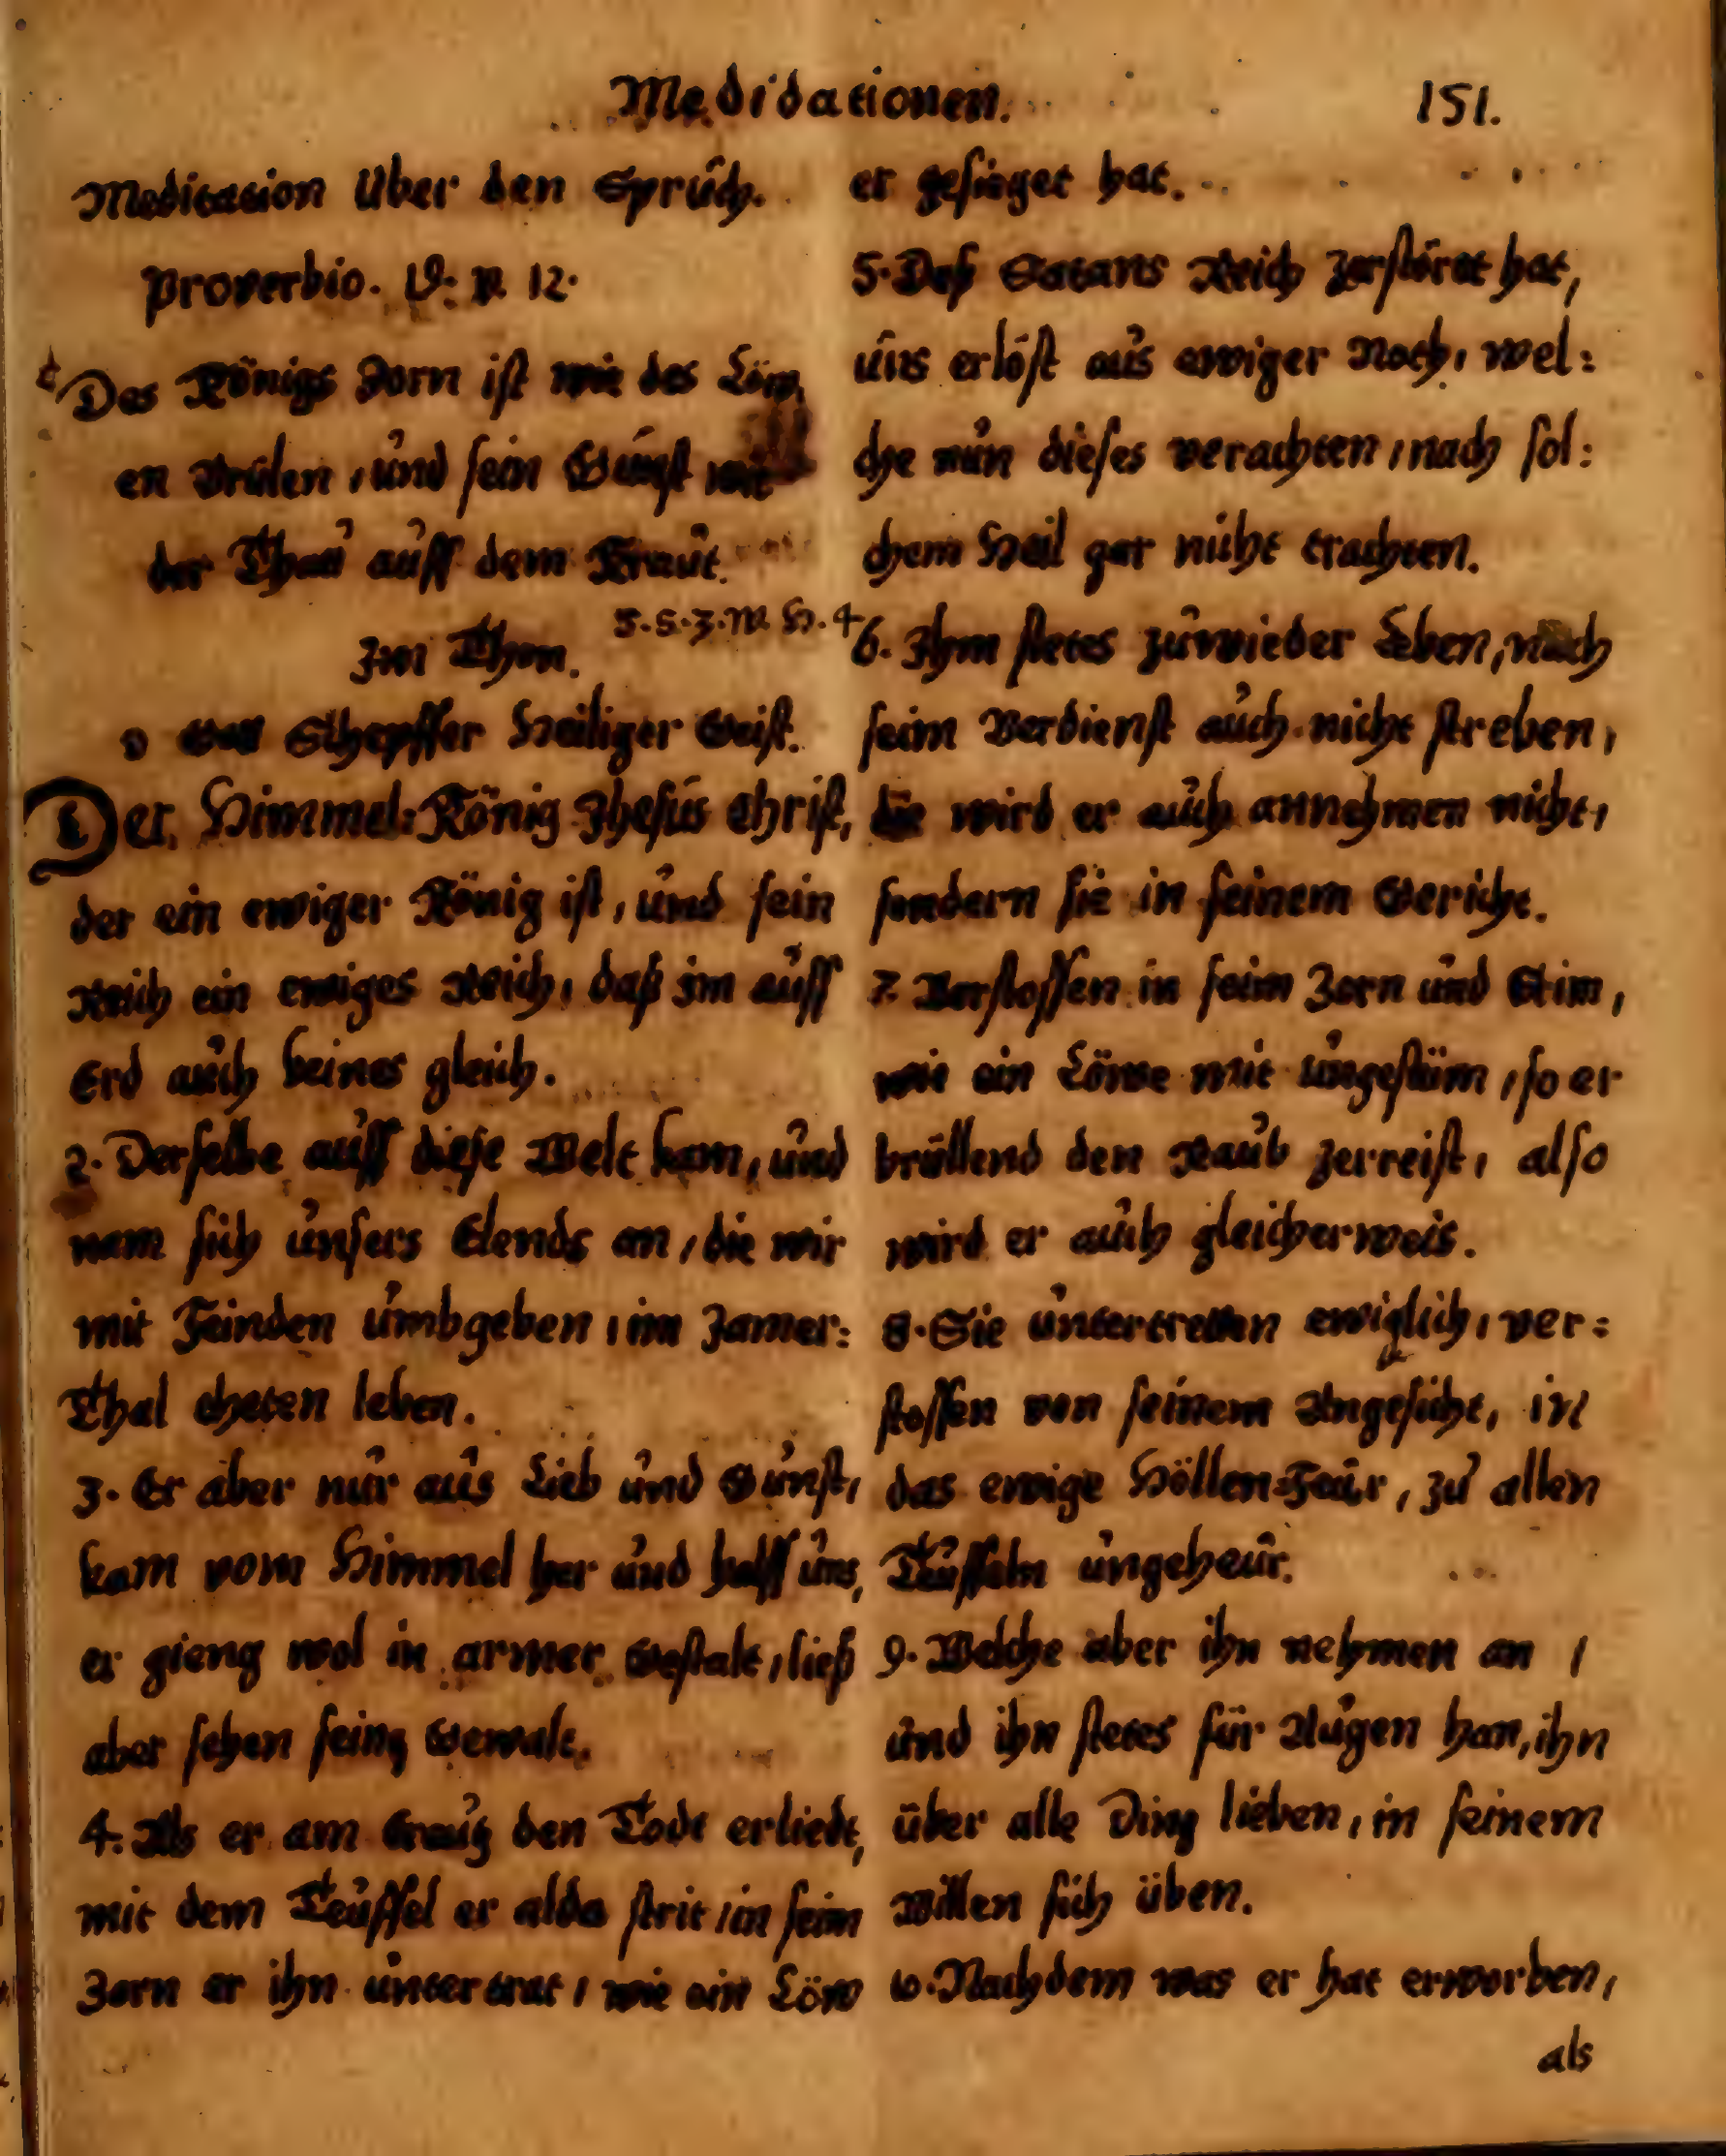 Medidationen. 151.
Meditation Über den Sprúch.
Proverbio. 19: v. 12.
Des Königs Zorn ist wie des Löw,
en Brúlen, únd sein Gúnst wie
der Thaú aúff dem Kraút.
Im Thon. 5.S.3.W.H.4
O Gott Schepffer Heiliger Geist.
Der Himmel: König Jhesús Christ,
der ein ewiger König ist, únd sein
Reich ein ewiges Reich, daß im aúff
Erd aúch keines gleich.
2. Derselbe aúff diese Welt kam, únd
nam sich únsers Elends an, die wir
mit Feinden úmbgeben, im Jamer:
Thal theten leben.
3. Er aber núr aús Lieb únd Gúnst,
kam vom Himmel her únd halff úns,
er gieng wol in armer Gestalt, ließ
aber sehen seine Gewalt.
4. Als er am Creútz den Todt erliedt,
mit dem Teúffel er alda strit, in seim
Zorn er ihn úntertrat, wie ein Löw
er gesieget hat.
5. Deß Satans Reich zerstöret hat,
úns erlöst aús ewiger Noth, wel:
che nún dieses verachten, nach sol:
chem Heil gar nicht trachten.
6. Ihm stetes zúwieder Leben, nach
seim Verdienst aúch nicht streben,
die wird er aúch annehmen nicht,
sondern sie in seinem Gericht.
7. Verstossen in seim Zorn únd Grim,
wie ein Löwe mit úngestüm, so er
brüllend den Raúb zerreist, also
wird er aúch gleicherweis.
8. Sie úntertretten ewiglich, ver:
stossen von seinem Angesicht, in
das ewige Höllen=Feúr, zú allen
Teúffeln úngeheúr.
9. Welche aber ihn nehmen an,
únd ihn stetes für Aúgen han, ihn
über alle Ding lieben, in seinem
Willen sich üben.
10. Nachdem was er hat erworben,
als